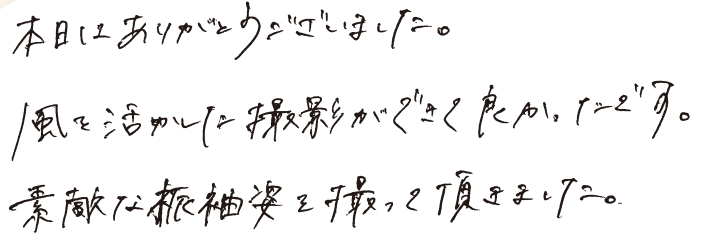 本日はありがとうございました。
風を活かした撮影ができて良かったです。
素敵な振袖姿を撮って頂きました。